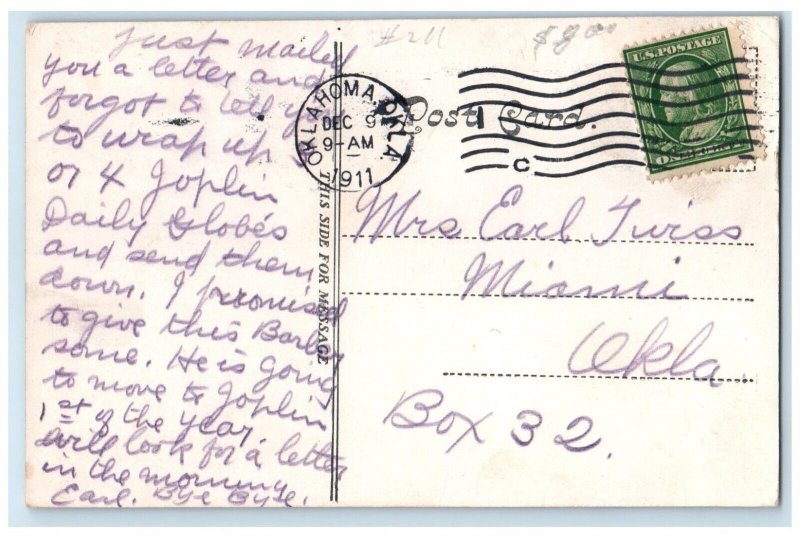 #211
$8.00
U.S. POSTAGE
Post Card.
OKLAHOMA, OKLA.
DEC 9
9-AM
1911
C
THIS SIDE FOR MESSAGE
Just mailed
you a letter and
forgot to tell you
to wrap up
or 4 Joplin
Daily Globés
and send them
down. I promised
to give this Barber
some. He is going
to move to Joplin
1st of the year
will look for a letter
in the morning
Earl. Bye Bye.
Mrs Earl Twiss
Miami
Okla.
Box 32.